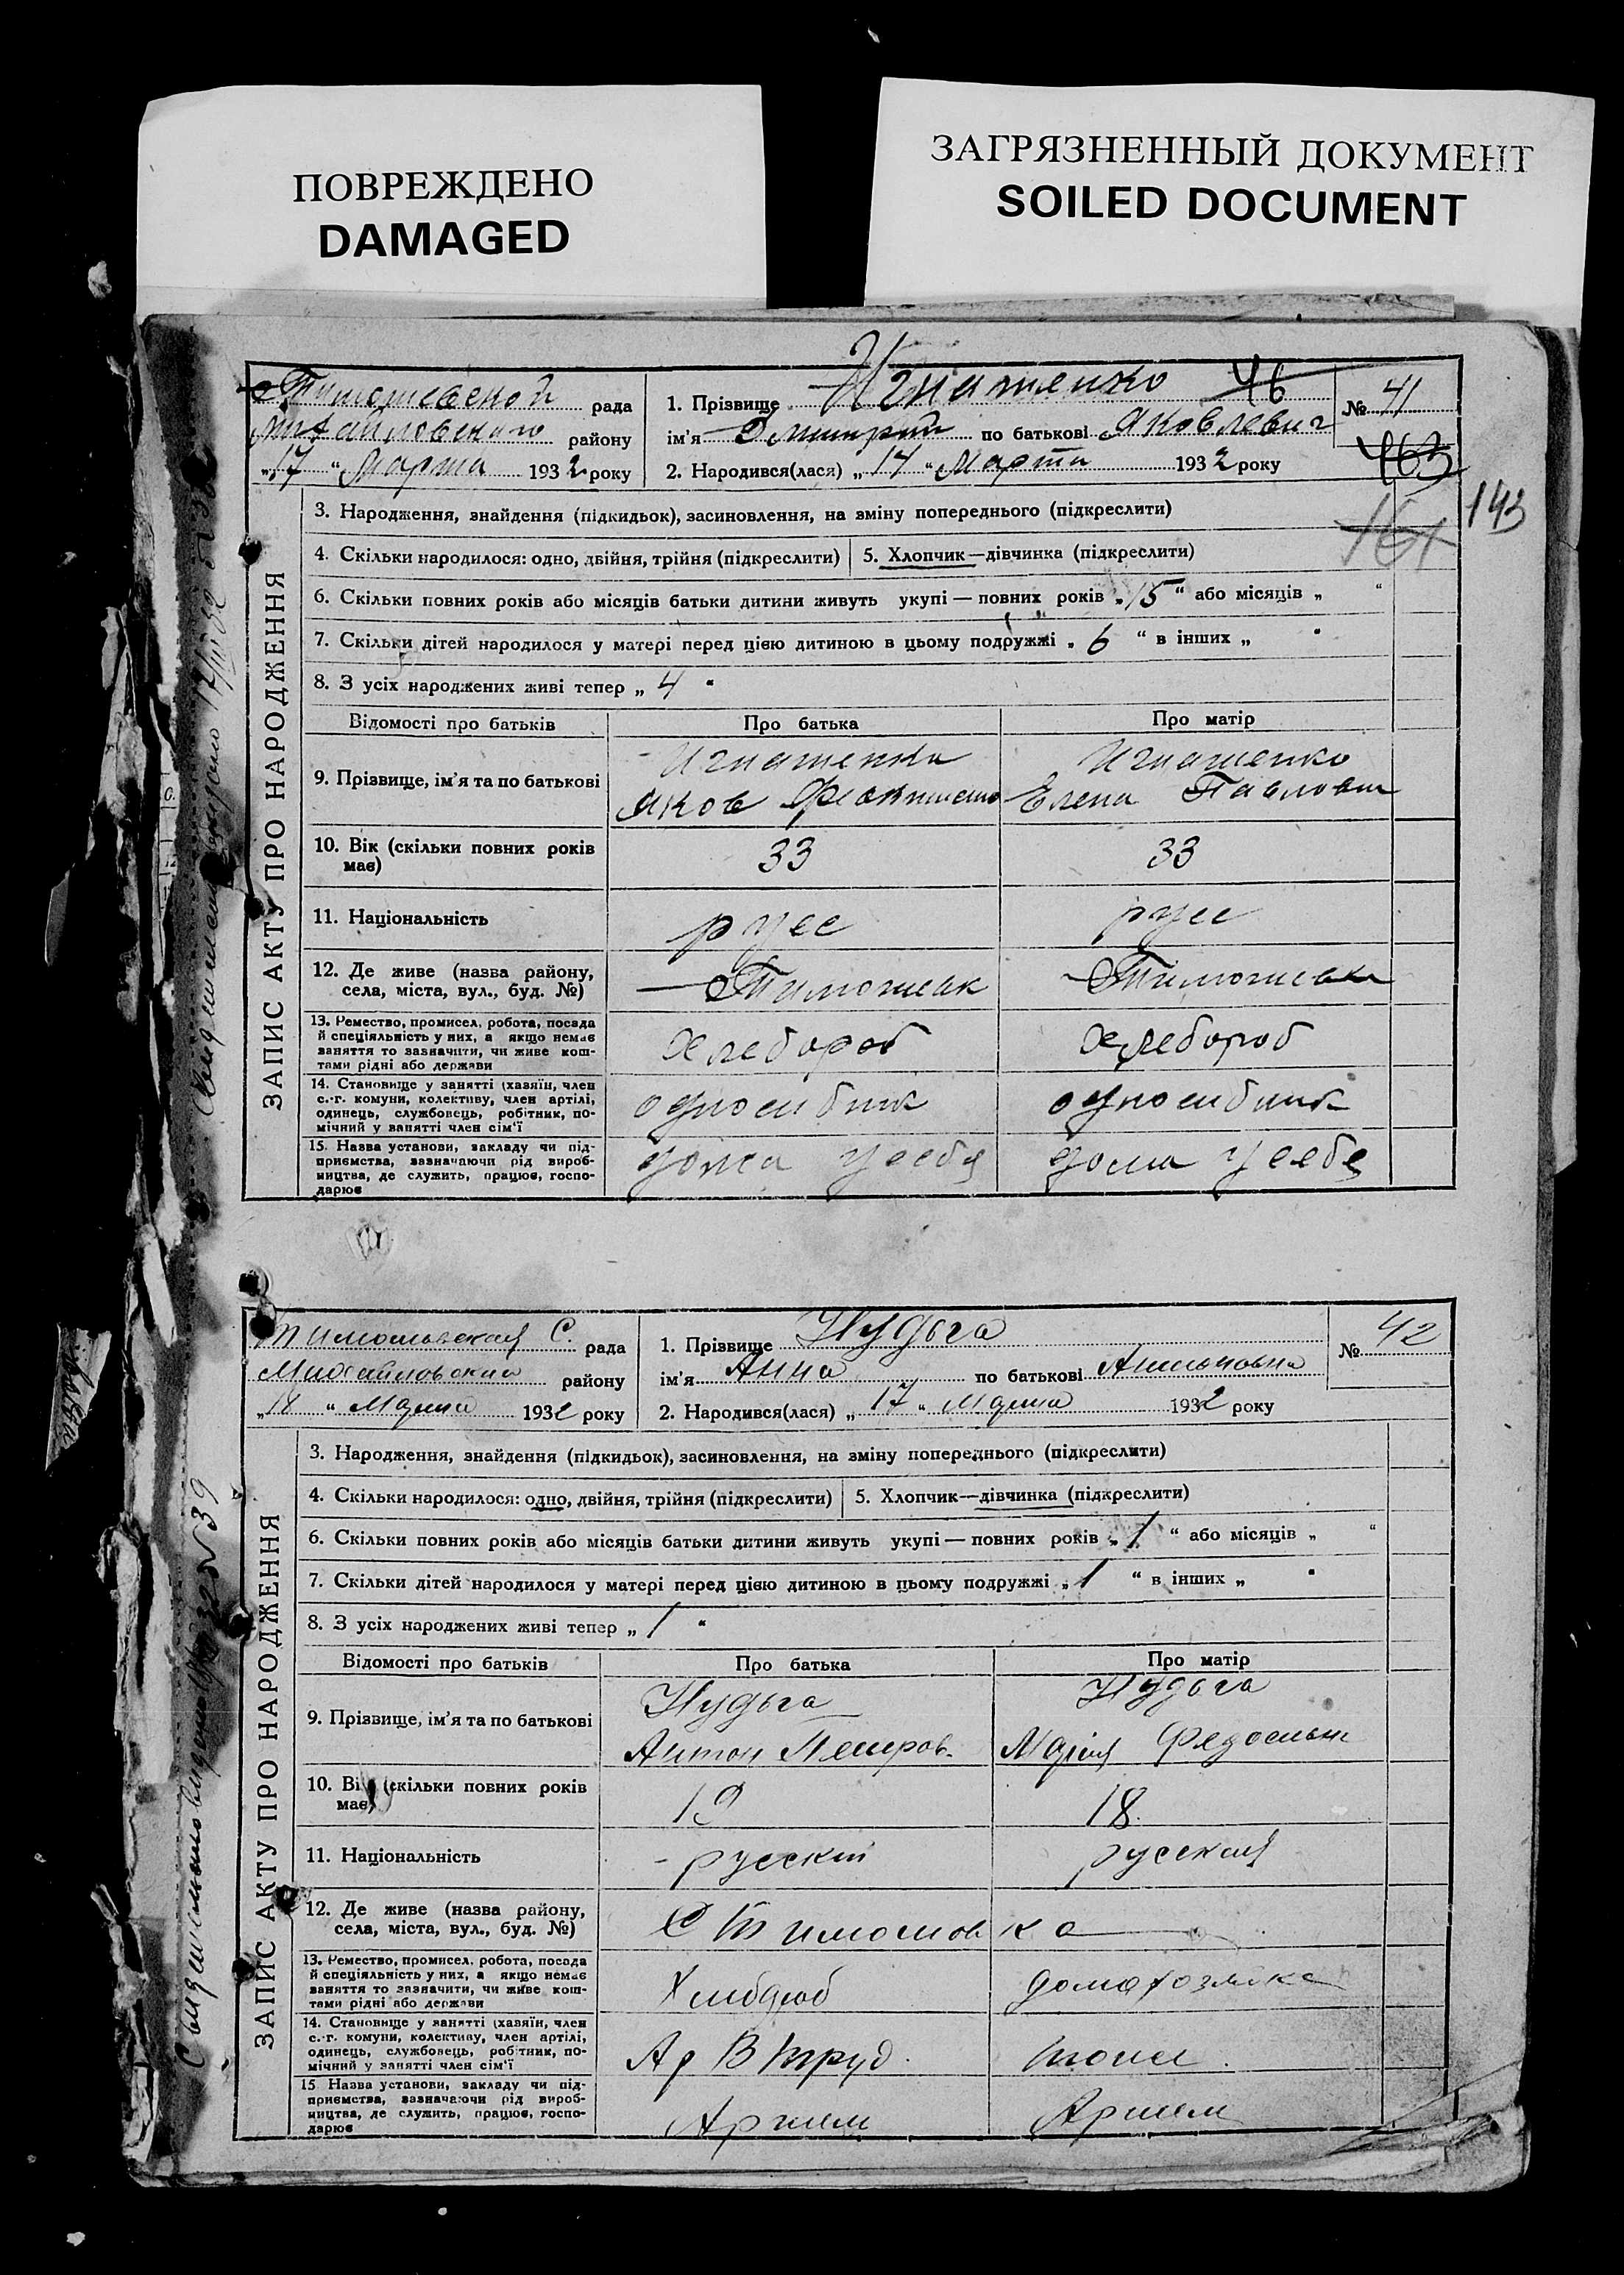 ПОВРЕЖДЕНО
DAMAGED
ЗАГРЯЗНЕННЫЙ ДОКУМЕНТ
SOILED DOCUMENT
рада
району
„17 “ Марта 1932 року
1. Прізвище Игнатенко 46
ім’я Дмитрий по батькові Яковлевич
2. Народився(лася) „ 14 “ Марта 1932 року
№ 41
463
161
143
ЗАПИС АКТУ ПРО НАРОДЖЕННЯ
3. Народження, знайдення (підкидьок), засиновлення, на зміну попереднього (підкреслити)
4. Скільки народилося: одно, двійня, трійня (підкреслити)
5. Хлопчик—дівчинка (підкреслити)
6. Скільки повних років або місяців батьки дитини живуть укупі — повних років „ 15 “ або місяців „ “
7. Скільки дітей народилося у матері перед цією дитиною в цьому подружжі „ 6 “ в інших „ “
8. З усіх народжених живі тепер „ 4 “
Відомості про батьків
Про батька
Про матір
9. Прізвище, ім’я та по батькові
Игнатенко
Яков
Игнатенко
Елена Павловн
10. Вік (скільки повних років
має)
33
33
11. Національність
русс
русс
12. Де живе (назва району,
села, міста, вул., буд. №)
13. Ремество, промисел, робота, посада
й спеціяльність у них, а якщо немає
заняття то зазначити, чи живе кош-
тами рідні або держави
Хлебороб
Хлебороб
14. Становище у занятті (хазяїн, член
с.-г. комуни, колективу, член артілі,
одинець, службовець, робітник, по-
мічний у занятті член сім’ї
односибник
односибник
15. Назва установи, закладу чи під-
приємства, зазначаючи рід вироб-
ництва, де служить, працює, госпо-
дарює
дома у себя
дома у себе
Тимошовская С. рада
Михайловский району
„18 “ Марта 1932 року
1. Прізвище Нудьга
ім’я Анна по батькові Антоновна
2. Народився(лася) „ 17 “ Марта 1932 року
№ 42
ЗАПИС АКТУ ПРО НАРОДЖЕННЯ
3. Народження, знайдення (підкидьок), засиновлення, на зміну попереднього (підкреслити)
4. Скільки народилося: одно, двійня, трійня (підкреслити)
5. Хлопчик—дівчинка (підкреслити)
6. Скільки повних років або місяців батьки дитини живуть укупі — повних років „ 1 “ або місяців „ “
7. Скільки дітей народилося у матері перед цією дитиною в цьому подружжі „ 1 “ в інших „ “
8. З усіх народжених живі тепер „ 1 “
Відомості про батьків
Про батька
Про матір
9. Прізвище, ім’я та по батькові
Нудьга
Антон Петров.
Нудьга
Мария
10. Вік (скільки повних років
має)
19
18.
11. Національність
русский
русская
12. Де живе (назва району,
села, міста, вул., буд. №)
С Тимошовка
13. Ремество, промисел, робота, посада
й спеціяльність у них, а якщо немає
заняття то зазначити, чи живе кош-
тами рідні або держави
Хлібороб
домахозяйка
14. Становище у занятті (хазяїн, член
с.-г. комуни, колективу, член артілі,
одинець, службовець, робітник, по-
мічний у занятті член сім’ї
Ар В труд.
тоже.
15. Назва установи, закладу чи під-
приємства, зазначаючи рід вироб-
ництва, де служить, працює, госпо-
дарює
Артели
Артели